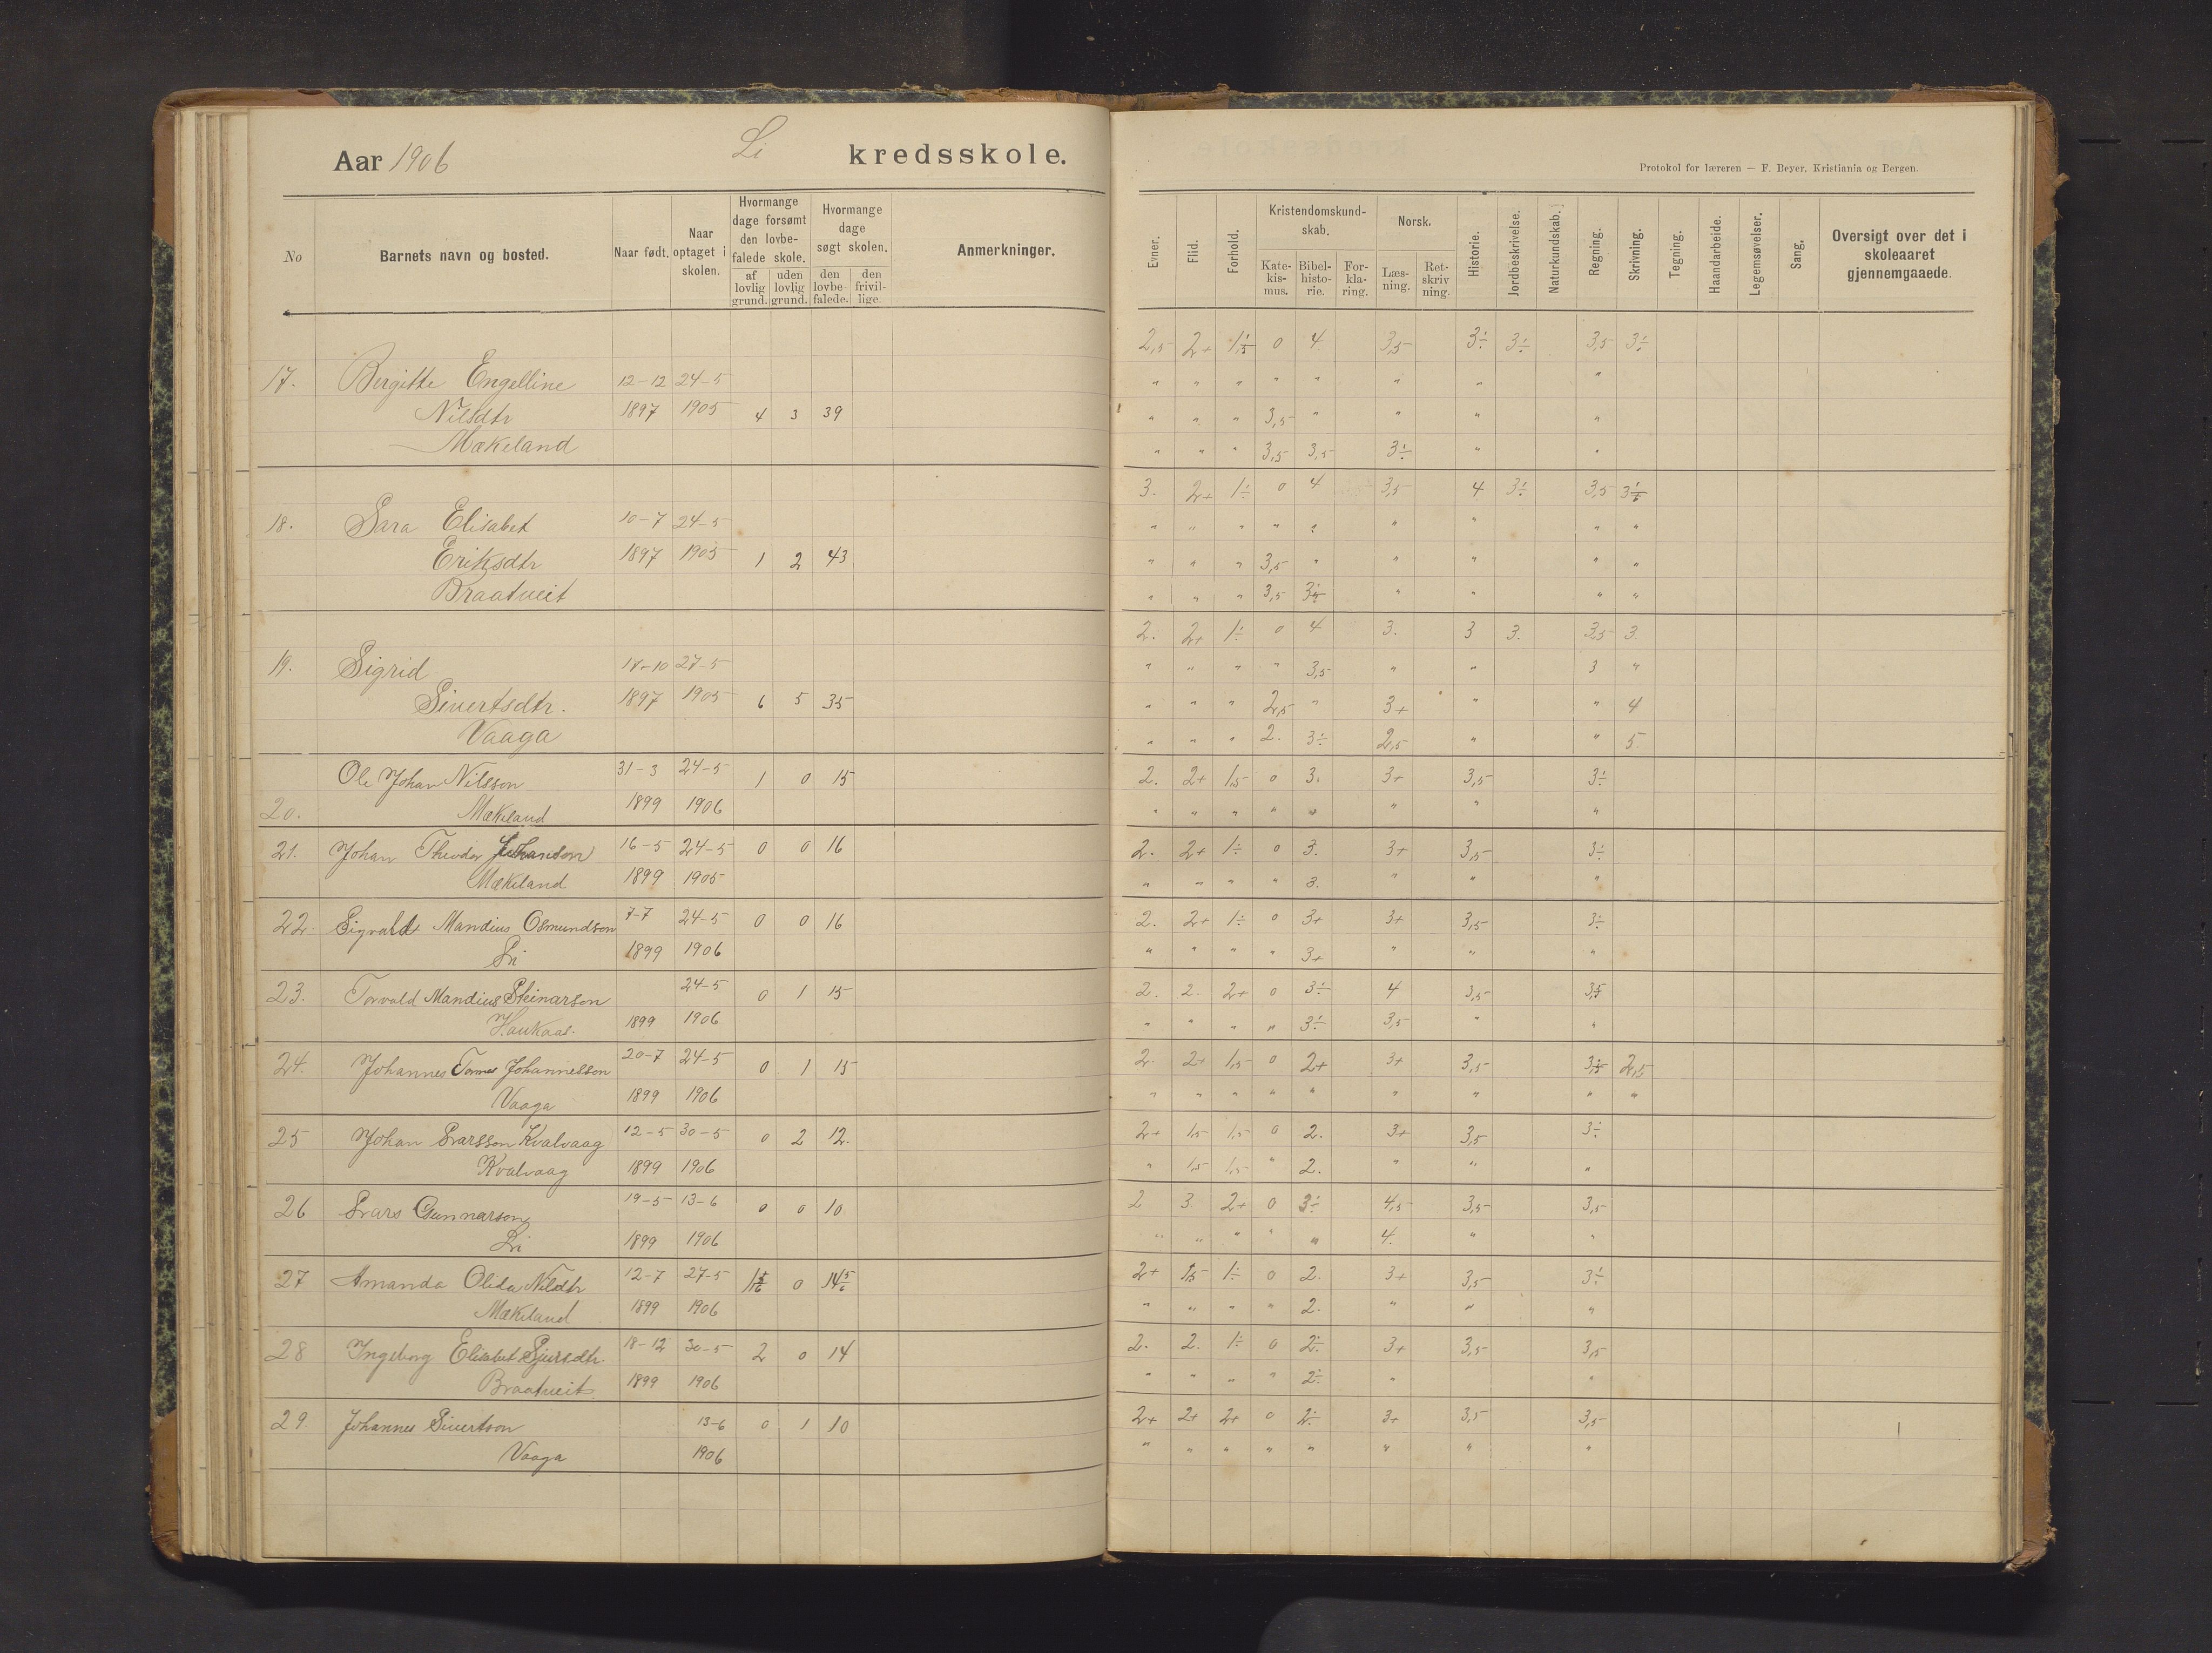 Aar 1906 Li kredsskole.
Protokol for læreren — F. Beyer, Kristiania og Bergen.
No Barnets navn og bosted. Naar født. Naar optaget i skolen. Hvormange dage forsømt den lovbefalede skole. af lovlig grund. uden lovlig grund. Hvormange dage søgt skolen. den lovbefalede. den frivillige. Anmerkninger.
Evner. Flid. Forhold. Kristendomskundskab. Katekismus. Bibelhistorie. Forklaring. Norsk. Læsning. Retskrivning. Historie. Jordbeskrivelse. Naturkundskab. Regning. Skrivning. Tegning. Haandarbeide. Legemsøvelser. Sang. Oversigt over det i skoleaaret gjennemgaaede.
2,5 2+ 1,5 0 4 3,5 3÷ 3÷ 3,5 3÷
17. Birgitte Engelline 12-12 24-5 " " " " " " " "
Nilsdtr 1897 1905 4 3 39 " " " 3,5 " " " "
Mækeland " " " 3,5 3,5 3÷ " "
3. 2+ 1÷ 0 4 3,5 4 3÷ 3,5 3÷
18. Sara Elisabet 10-7 24-5 " " " " " " " " "
Eriksdtr 1897 1905 1 2 43 " " " 3,5 " " " " "
Braatveit " " " 3,5 3÷ " " " "
2. 2+ 1÷ 0 4 3. 3 3. 3,5 3.
19. Sigrid 18-10 27-5 " " " " 3,5 " " 3 "
Sivertsdtr. 1897 1905 6 5 35 " " " 2,5 " 3+ " " 4
Vaaga " " " 2. 3÷ 2,5 " " 5.
Ole Johan Nilsson 31-3 24-5 1 0 15 2. 2+ 1,5 0 3. 3+ 3,5 3÷
20. Mækeland 1899 1906 " " " " " " " "
21. Johan Theodor Johanson 16-5 24-5 0 0 16 2. 2+ 1÷ 0 3. 3+ 3,5 3÷
Mækeland 1899 1905 " " " " 3. " " "
22. Sigvald Mandius Osmundson 7-7 24-5 0 0 16 2. 2+ 1÷ 0 3+ 3+ 3,5 3÷
Li 1899 1906 " " " " 3+ " " "
23. Torvald Mandius Steinarson 24-5 0 1 15 2. 2. 2+ 0 3÷ 4 3,5 3,5
Haukaas. 1899 1906 " " " " 3÷ 3,5 " "
24. Johannes Johannesson 20-7 24-5 0 1 15 2. 2+ 1,5 0 2+ 3+ 3,5 3,5 2,5
Vaaga 1899 1906 " " " " " " " " "
25 Johan Larsson Kvalvaag 12-5 30-5 0 2 12. 2+ 1,5 1,5 0 2. 3+ 3,5 3÷
Kvalvaag 1899 1906 " 1,5 1,5 " 2. " " "
26 Lars Gunnarson 19-5 13-6 0 0 10 2 3. 2+ 0 3÷ 4,5 3,5 3,5
Li 1899 1906 " " " " " 4. " "
27 Amanda Olida Nilsdtr 12-7 27-5 0 14 5/6 2+ 1,5 1÷ 0 2. 3+ 3,5 3÷
Mækeland 1899 1906 " " " " 2. " " "
28 Ingeborg Elisabet Sjursdtr. 18-12 30-5 2 0 14 2. 2. 1÷ 0 2÷ 3+ 3,5 3,5
Braatveit 1899 1906 " " " " 2÷ " "
29. Johannes Sivertson 13-6 0 1 10 2+ 2+ 2+ 0 2÷ 3+ 3,5 3,5
Vaaga 1906 " " " " " " " "